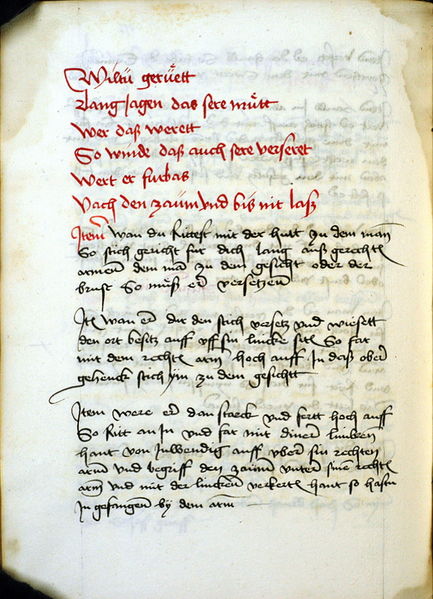 Wiltu gerüett
Lang Jagen das sere mütt
Wer daß werett
So winde daß auch sere verseret
Wert er furbas
Vach den zaum vnd biß nit laß
Item wan du Rittest mit der hutt zu dem man
So stich gericht fur dich lang auß gerechtem
armen dem man zu dem gesicht oder der
brust So muß er versetzen
Itm wan er dir den stich versetz vnd
den ort besitz auff vff sin lincke sitt So far
mit dem rechten arm hoch auff In daß ober
gehenck stich ym zu dem gesichtt
Item were er dan starck vnd fertt hoch auff
So Ritt an In vnd far mit diner lincken
hant von Inwendig auff vber sin rechten
arm vnd begriff den zaum vnter sinem rechten
arm vnd mit der lincken verkertten hant so hastu
In gefangen by dem arm